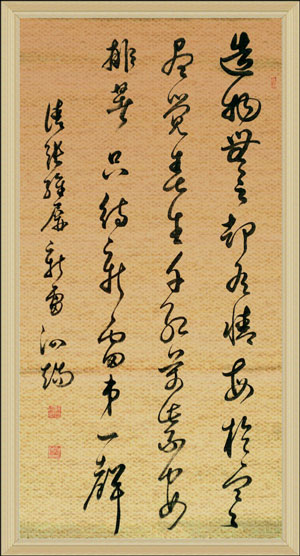 造物無言却有情每於寒
盡覺春生千紅萬紫安
排著只待新雷第一聲
清張維屏新雷